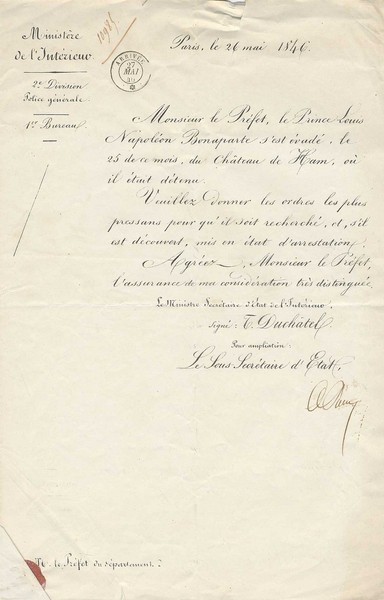 Ministère
de l'Intérieur
2e Division
Police générale
1er Bureau
ARRIVÉE
27
MAI
Paris, le 26 mai 1846.
Monsieur le Préfet, le Prince Louis
Napoléon Bonaparte s'est évadé, le
25 de ce mois, du Château de Ham, où
il était détenu.
Veuillez donner les ordres les plus
pressans pour qu'il soit recherché, et, s'il
est découvert, mis en état d'arrestation.
Agréez, Monsieur le Préfet,
l'assurance de ma considération très distinguée
Le Ministre Secrétaire d'Etat de l'Intérieur,
Signé : T. Duchâtel
Pour ampliation :
Le Sous-Secrétaire d'Etat,
M. le Préfet du département